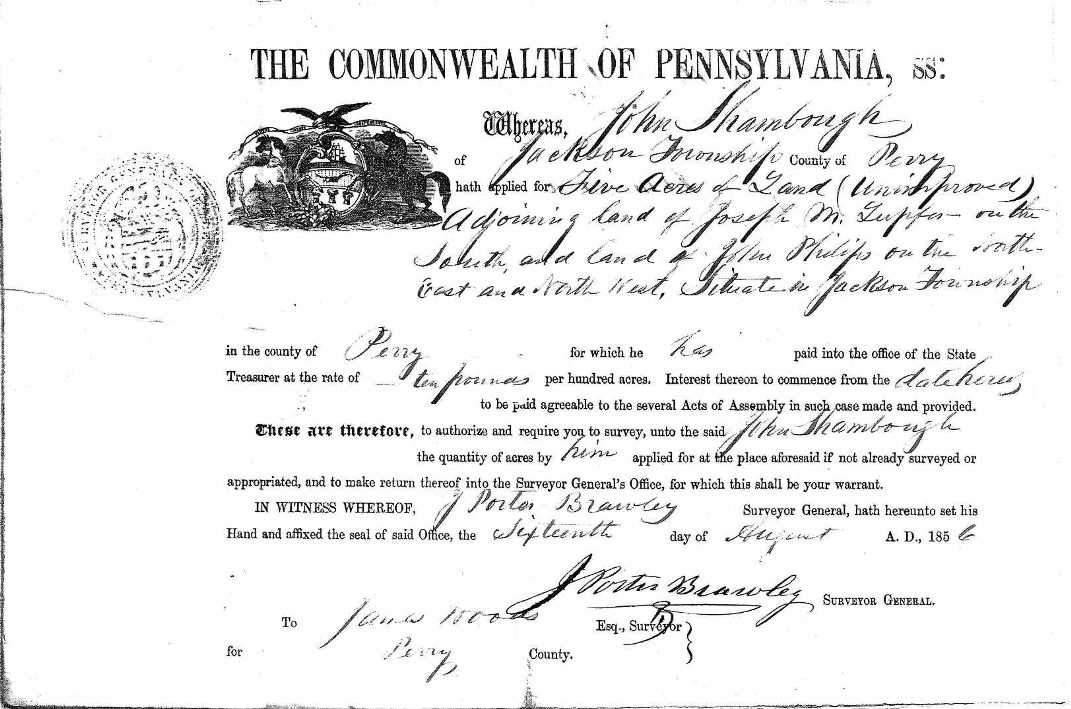 THE COMMONWEALTH OF PENNSYLVANIA, ss:
Whereas, John Shambough
of Jackson Township County of Perry
hath applied for Five Acres of Land (Unimproved)
Adjoining land of Joseph M. Lupfer on the
South, and land of John Philips on the South
East and North West, Situate in Jackson Township
in the county of Perry for which he has paid into the office of the State
Treasurer at the rate of ten pounds per hundred acres. Interest thereon to commence from the date hereof
to be paid agreeable to the several Acts of Assembly in such case made and provided.
These are therefore, to authorize and require you to survey, unto the said John Shambough
the quantity of acres by him applied for at the place aforesaid if not already surveyed or
appropriated, and to make return thereof into the Surveyor General's Office, for which this shall be your warrant.
IN WITNESS WHEREOF, J Porter Brawley Surveyor General, hath hereunto set his
Hand and affixed the seal of said Office, the Sixteenth day of August A. D., 1856
J Porter Brawley SURVEYOR GENERAL.
To James Woods Esq., Surveyor
for Perry County.